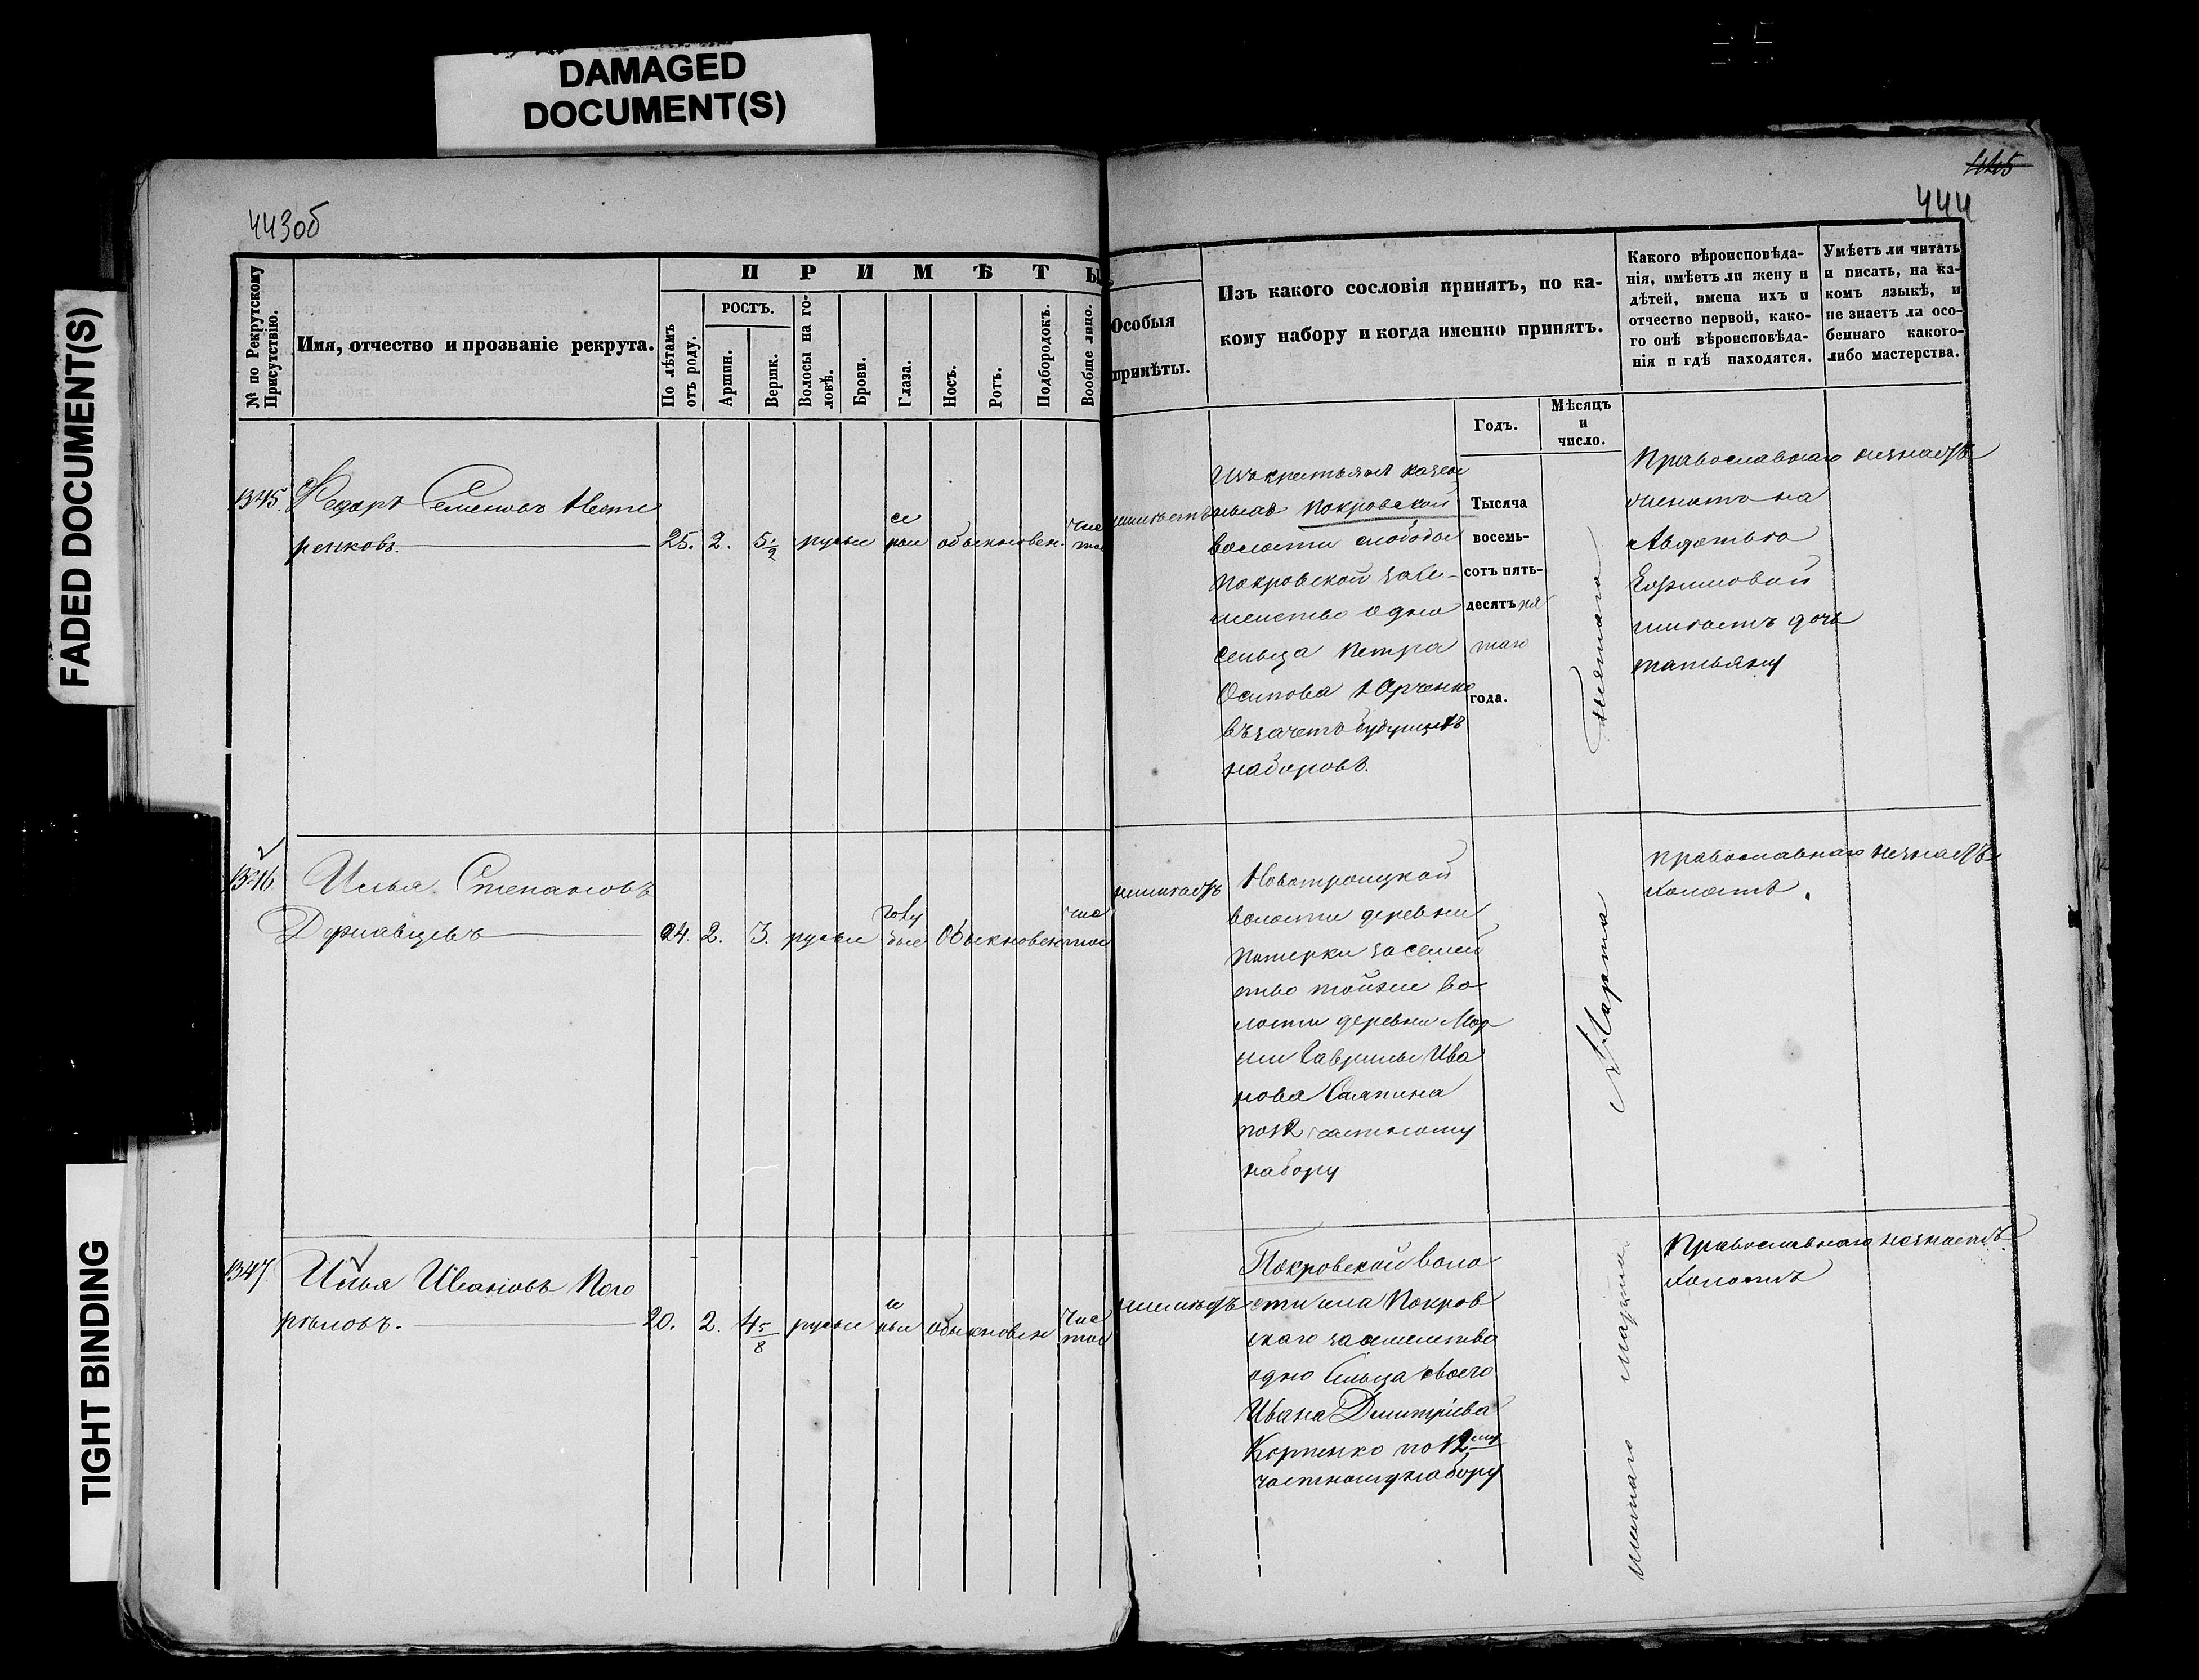 DAMAGED
DOCUMENT(S)
FADED DOCUMENT(S)
TIGHT BINDING
443об
445
444
№ по Рекрутскому
Присутствію.
Имя, отчество и прозваніе рекрута.
ПРИМѢТЫ
По лѣтамъ
отъ роду.
РОСТЪ.
Аршин.
Вершк.
Волосы на го-
ловѣ.
Брови.
Глаза.
Носъ.
Ротъ.
Подбородокъ.
Вообще лицо.
Особыя
примѣты.
Изъ какого сословія принятъ, по ка-
кому набору и когда именно принятъ.
Годъ.
Мѣсяцъ
и
число.
Какого вѣроисповѣда-
нія, имѣетъ ли жену и
дѣтей, имена ихъ и
отчество первой, како-
го онѣ вѣроисповѣда-
нія и гдѣ находятся.
Умѣетъ ли читать
и писать, на ка-
комъ языкѣ, и
не знаетъ ли осо-
беннаго какого-
либо мастерства.
1345.
Федоръ Семеновъ Несте
ренковъ.
25. 2. 5 1/2 русые се рые обыкновен. чис тое
неимѣетъ
Изъ крестьянъ казен
ныхъ Покровской
волости слободы
Покровской за се-
мейство одно
сельца Петра
Осипова Юрченко
въ зачетъ будущихъ
наборовъ.
Тысяча
восемь-
сотъ пять-
десятъ пя
таго
года.
Православнаго
женатъ на
Авдотьѣ
Ефимовой
имѣетъ дочь
татьяну
незнаетъ
1346
Илья Степановъ
24. 2. 3. русые голу бые Обыкновен чис тое
неимѣетъ
Новотроицкой
волости деревни
за семей
ство тойже во
лости деревни Мор
ши Гаврилы Ива
нова Саяпина
по 12 частному
набору
Пятаго
Марта
православнаго
холостъ.
незнаетъ
1347.
Илья Ивановъ Пого
рѣловъ.
20. 2. 4 5/8 русые обыкновен Чис тое
неимѣетъ
Покровской воло
сти села Покров
скаго за семейство
одно сельца своего
Ивана Дмитріева
по 12му
частному набору
шестаго марта
Православнаго
холостъ
незнаетъ.